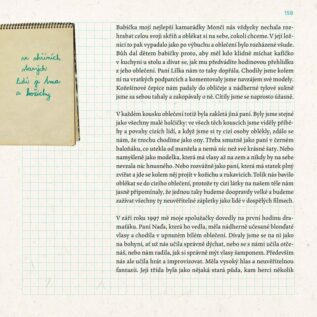 159
ve skříních
starých
lidí je tma
a kožichy
Babička mojí nejlepší kamarádky Monči nás vždycky nechala roz-
hrabat celou svoji skříň a oblékat si na sebe, cokoli chceme. V její lož-
nici to pak vypadalo jako po výbuchu a oblečení bylo rozházené všude.
Bůh dal dětem babičky proto, aby měl kdo klidně míchat kafíčko
v kuchyni u stolu a dívat se, jak mu předvádíte hodinovou přehlídku
z jeho oblečení. Paní Lilka nám to taky dopřála. Chodily jsme kolem
ní na vratkých podpatcích a komentovaly jsme navzájem své modely.
Kožešinové čepice nám padaly do obličeje a nádherné tylové sukně
jsme za sebou tahaly a zakopávaly o ně. Cítily jsme se naprosto úžasně.
V každém kousku oblečení totiž byla zakletá jiná paní. Byly jsme stejné
jako všechny malé holčičky: ve všech těch kouscích jsme viděly příbě-
hy a povahy cizích lidí, a když jsme si ty cizí osoby oblékly, zdálo se
nám, že trochu chodíme jako ony. Třeba smutné jako paní v černém
baloňáku, co utekla od manžela a nemá nic než své krásné šaty. Nebo
namyšleně jako modelka, která má vlasy až na zem a nikdy by na sebe
nevzala nic hnusného. Nebo rozvážně jako paní, která má statek plný
zvířat a jde se kolem něj projít v kožichu a rukavicích. Tolik nás bavilo
oblékat se do cizího oblečení, protože ty cizí látky na našem těle nám
jasně připomínaly, že jednou taky budeme doopravdy velké a budeme
zažívat všechny ty neuvěřitelné zápletky jako lidé v dospělých filmech.
V září roku 1997 mě moje spolužačky dovedly na první hodinu dra-
maťáku. Paní Naďa, která ho vedla, měla nádherně učesané blonďaté
vlasy a chodila v upnutém bílém oblečení. Dívaly jsme se na ni jako
na bohyni, ať už nás učila správně dýchat, nebo se s námi učila otče-
náš, nebo nám radila, jak si správně mýt vlasy šamponem. Především
nás ale učila hrát a improvizovat. Měla vysoký hlas a neuvěřitelnou
fantazii. Její třída byla jako nějaká stará půda, kam herci několik